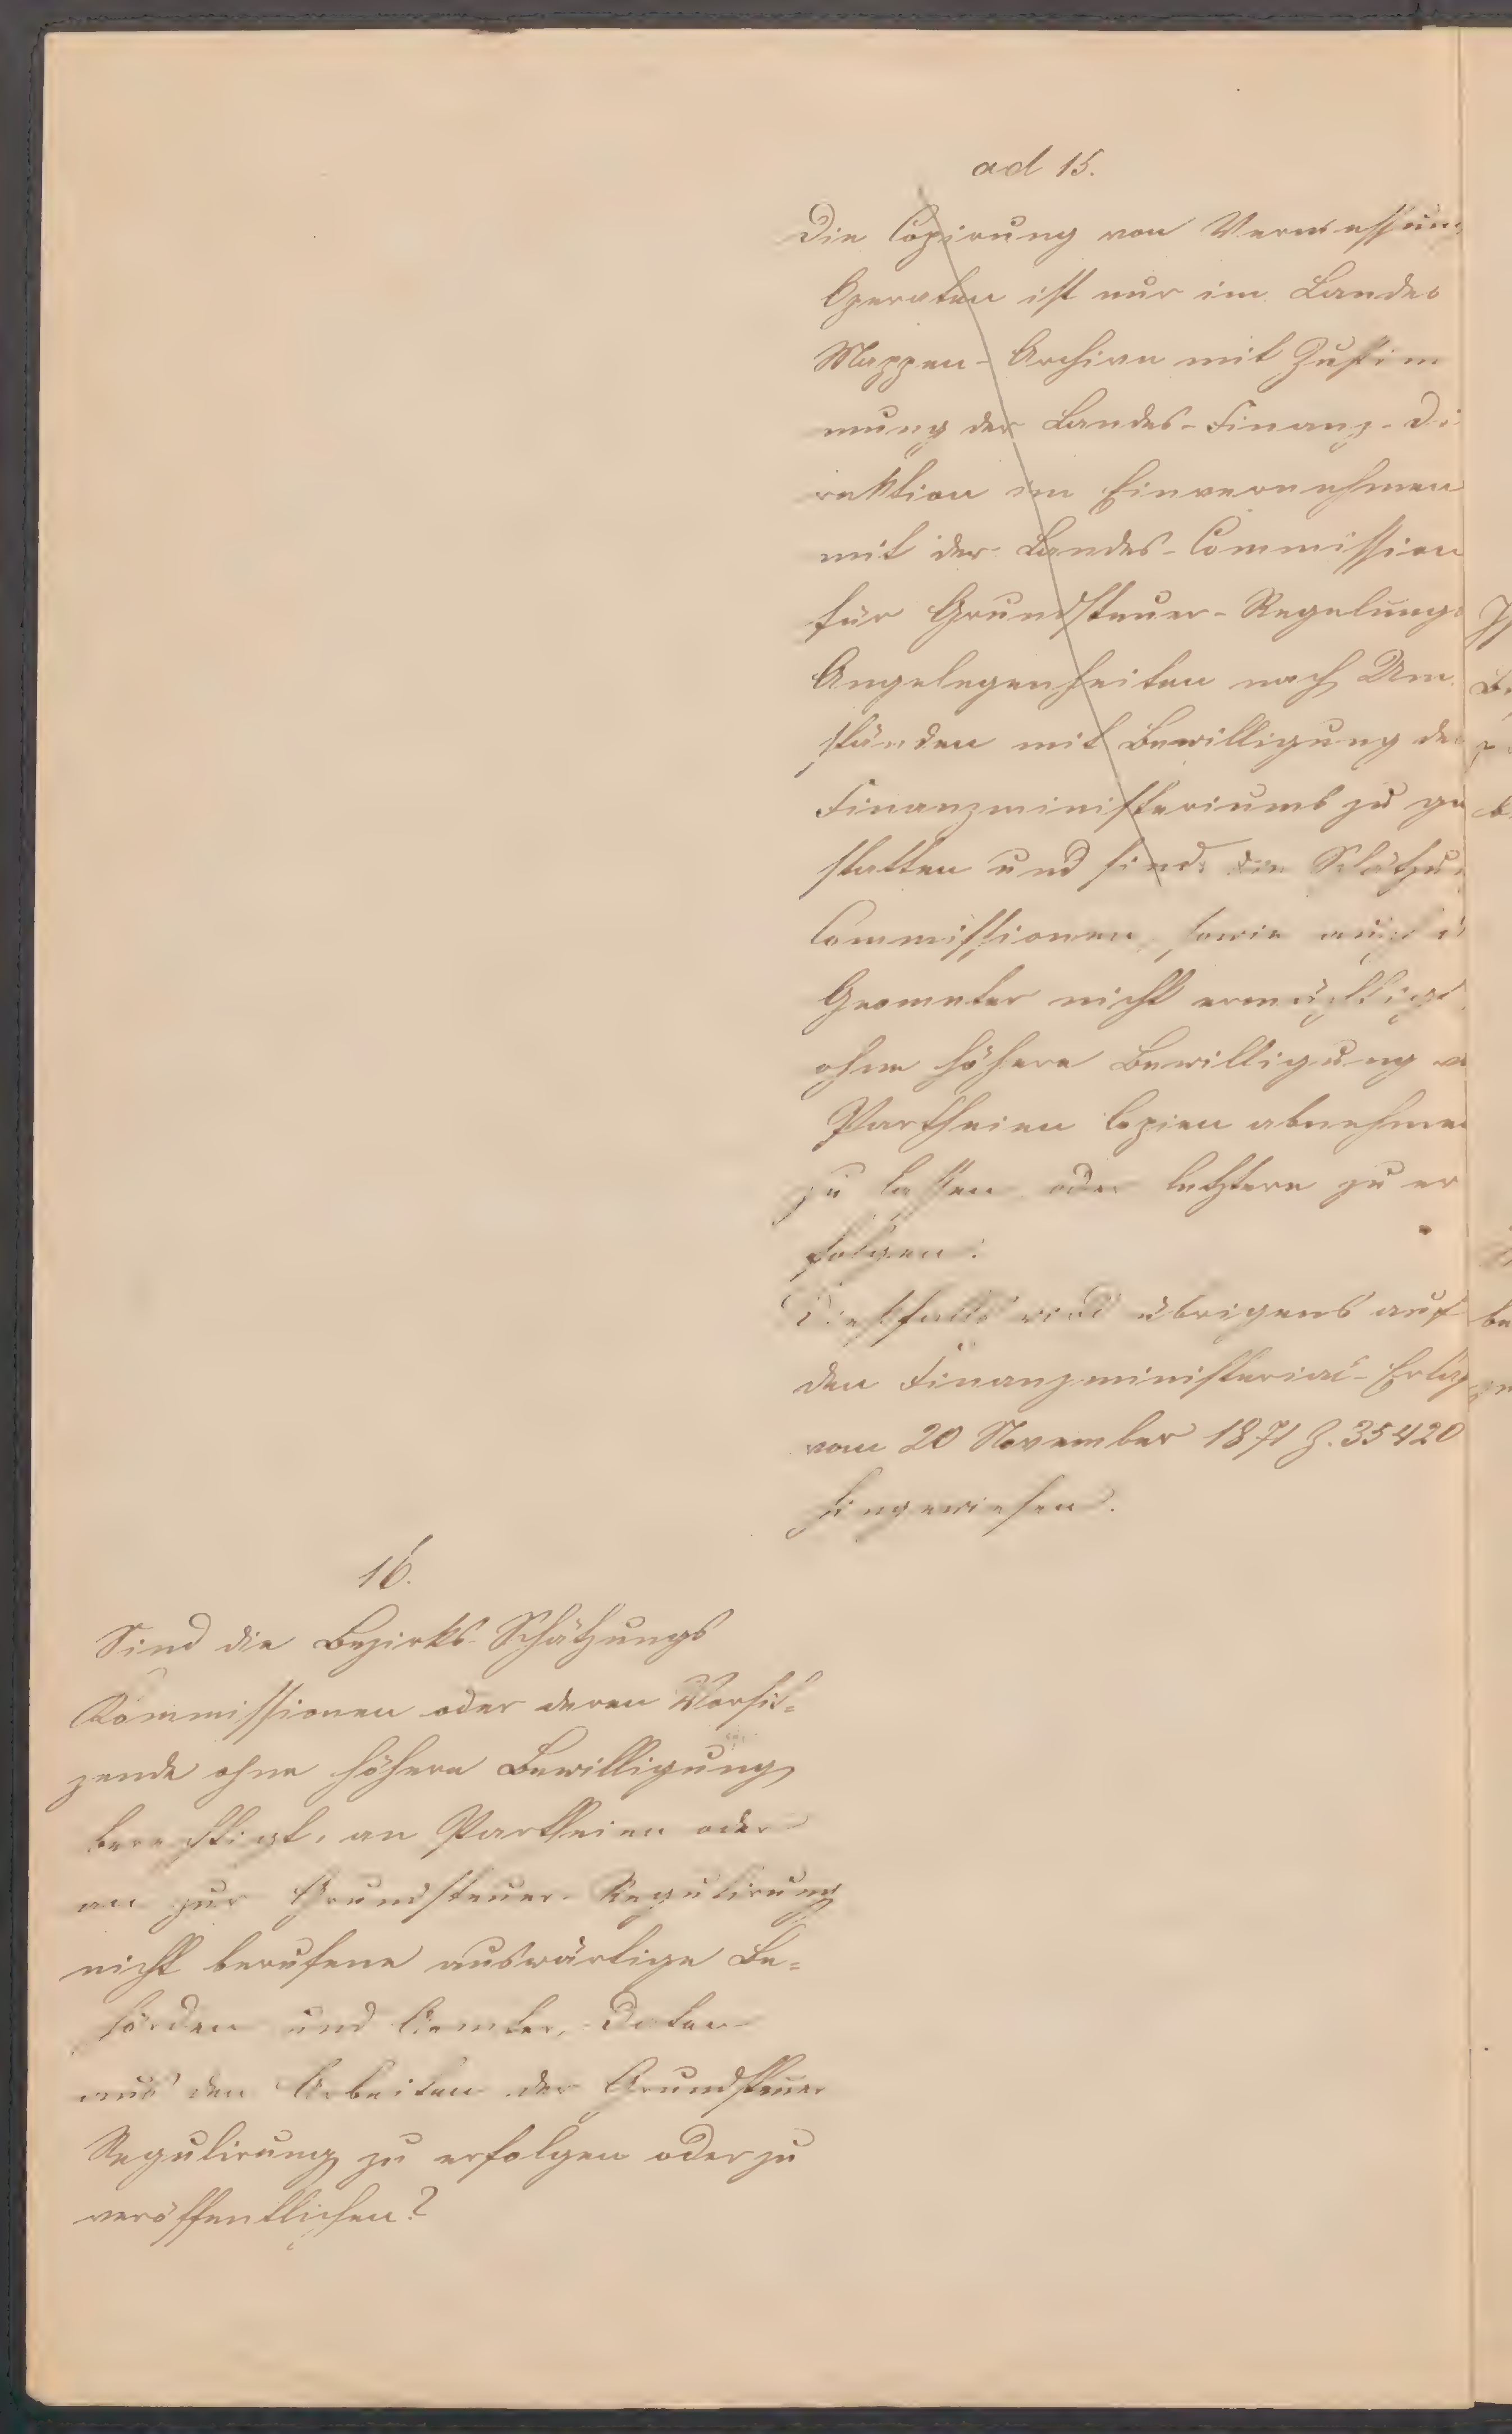 ad 15.
Die Copirung von Vermessung
Operaten ist nur im Landes
Mappen-Archive mit Zustim
mung der Landes-Finanz-Di
rektion im Einvernehmen
mit der Landes-Commission
für Grundsteuer-Regelungs
Angelegenheiten nach Um
ständen mit Bewilligung des
Finanzministeriums zu ge
statten und sind die Schätzu
Commissionen, sowie auch d
Geometer nicht ermächtigt
ohne höhere Bewilligung v
Partheien Copien abnehmen
zu lassen oder letztere zu er
folgen.
Dießfalls wird übrigens auf
den Finanzministerial-Erlaß
vom 20 November 1871 Z. 35420
hingewiesen.
16.
Sind die Bezirks-Schätzungs
Kommissionen oder deren Vorsit=
zende ohne höhere Bewilligung
berechtigt, an Partheien oder
an zur Grundsteuer-Regulirung
nicht berufene auswärtige Be=
hörden und Aemter, Daten
aus den Arbeiten der Grundsteuer
Regulirung zu erfolgen oder zu
veröffentlichen?